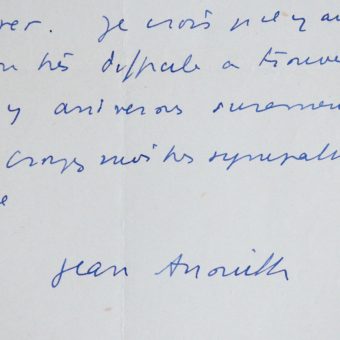 ver. Je crois qu'il y au
on très difficile a trouve
y arriverons surement
Croyez moi très sympath
e
Jean Anouilh